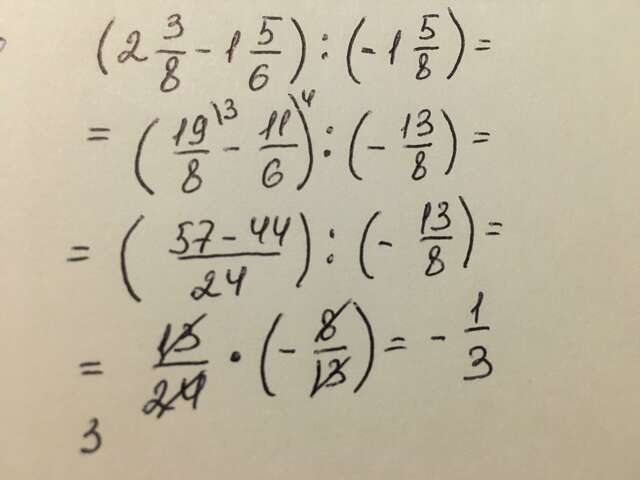 (2 3/8 - 1 5/6) : (-1 5/8) =
= (19/8 \3 - 11/6 \4) : (- 13/8) =
= (57-44/24) : (- 13/8) =
= 13/24 • (- 8/13) = - 1/3
3